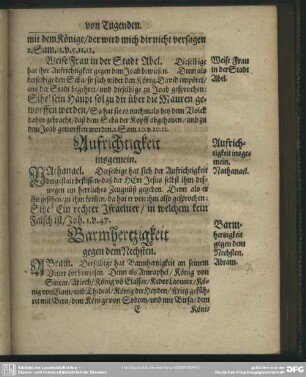 von Tugenden.
mit dem Könige/der wird mich dir nicht versagen
2. Sam. 13. v. 11. 12.
Weise Frau in der Stadt Abel. Dieselbige
hat ihre Aufrichtigkeit gegen dem Joab bewiesen. Denn als
derselbige den Scha/so sich wider den König David empöret/
aus der Stadt begehret/ und dieselbige zu Joab gesprochen:
Sihe/ sein Haupt sol zu dir über die Mauren ge-
worffen werden/ So hat sie es nachmals bey dem Volck
dahin gebracht/ daß dem Scha der Kopff abgehauen/ und zu
dem Joab geworffen worden. 2. Sam. 20. v. 20. 21.
Weise Frau
in der Stadt
Abel.
Aufrichtigkeit
insgemein.
Aufrich-
tigkeit insge-
mein.
NAthanael. Derselbige hat sich der Aufrichtigkeit
dergestalt beflissen/ daß der HErr Jesus selbst ihm deß-
wegen ein herrliches Zeugnüß gegeben. Denn als er
ihn gesehen/ zu ihm kommen/ da hat er von ihm also gesprochen:
Sihe! Ein rechter Israeliter/ in welchem kein
Falsch ist/ Joh. 1. v. 47.
Nathanael.
Barmhertzigkeit
gegen dem Nechsten.
Barm-
hertzigkeit
gegen dem
Nechsten.
ABram. Derselbige hat Barmhertzigkeit an seinem
Vetter Lot bewiesen. Denn als Amraphel/ König von
Sinear/ Arioch/ König von Elassar/ Kedor Laomor/ Kö-
nig von Elam/ und Thideal/ König der Heyden/ Krieg gefüh-
ret mit Bera/ dem König von Sodom/ und mit Birsa/ dem
Abram.
E
König